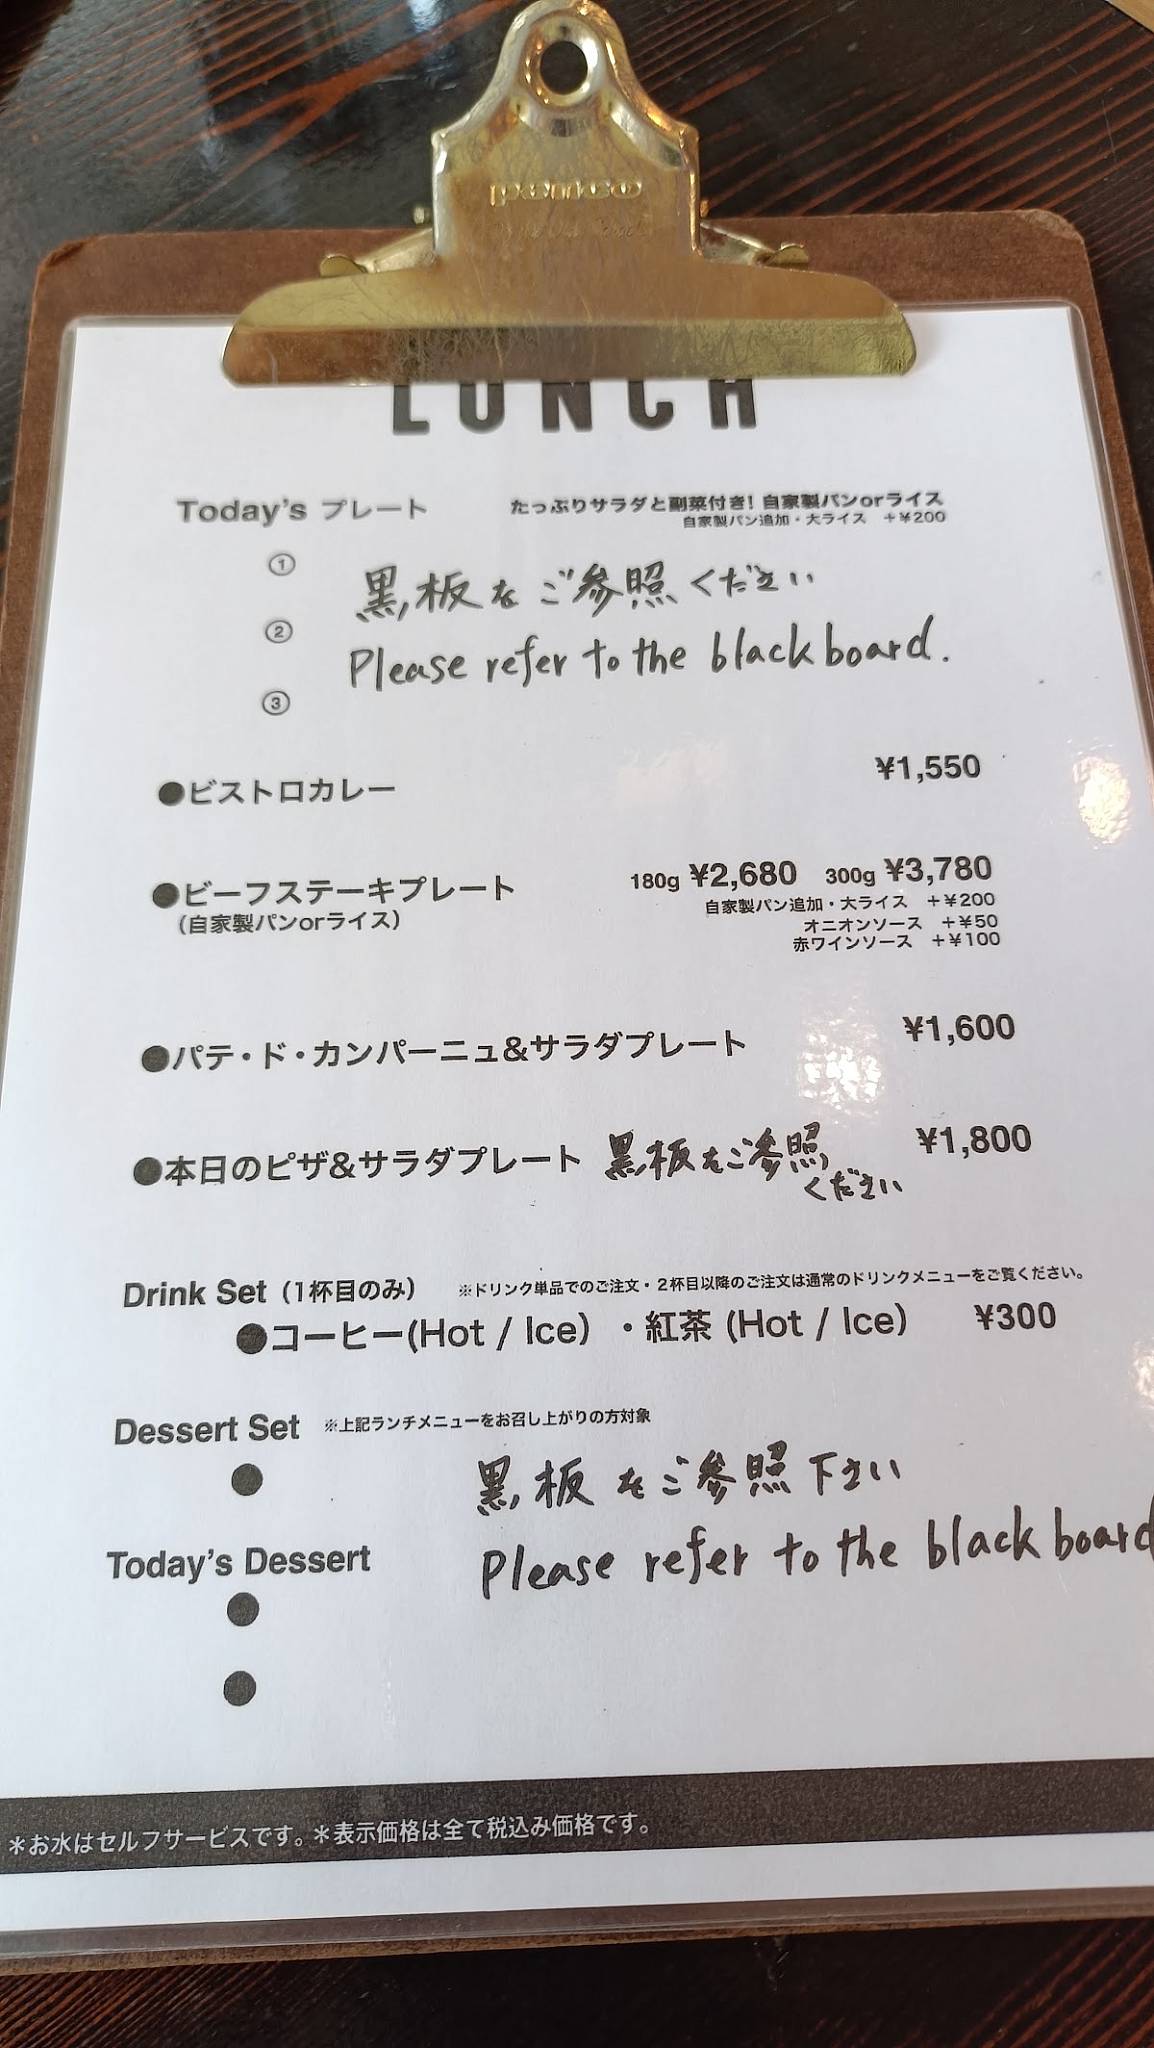 penco
LUNCH
Today's プレート
たっぷりサラダと副菜付き! 自家製パンorライス
自家製パン追加・大ライス +¥200
①
黒板をご参照ください
②
Please refer to the blackboard.
③
●ビストロカレー ¥1,550
●ビーフステーキプレート 180g ¥2,680 300g ¥3,780
(自家製パンorライス)
自家製パン追加・大ライス +¥200
オニオンソース +¥50
赤ワインソース +¥100
●パテ・ド・カンパーニュ&サラダプレート ¥1,600
●本日のピザ&サラダプレート 黒板をご参照ください ¥1,800
Drink Set (1杯目のみ) ※ドリンク単品でのご注文・2杯目以降のご注文は通常のドリンクメニューをご覧ください。
●コーヒー(Hot / Ice) ・紅茶 (Hot / Ice) ¥300
Dessert Set ※上記ランチメニューをお召し上がりの方対象
●
黒板をご参照下さい
Today's Dessert
Please refer to the blackboard
●
●
＊お水はセルフサービスです。＊表示価格は全て税込み価格です。